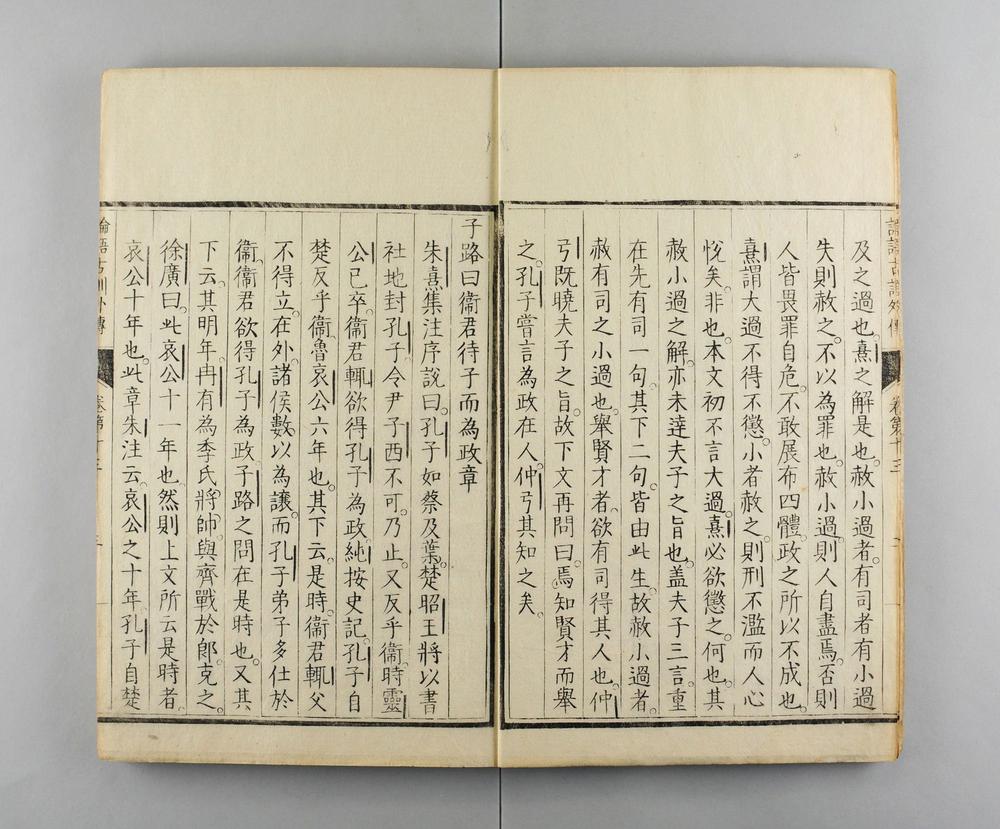 論語古訓外傳
卷第十三
及之過也。熹之解是也。赦小過者。有司者有小過
失則赦之。不以為罪也。赦小過。則人自盡焉。否則
人皆畏罪自危。不敢展布四體。政之所以不成也。
熹謂大過不得不懲。小者赦之。則刑不濫而人心
悅矣。非也。本文初不言大過。熹必欲懲之。何也。其
赦小過之解。亦未達夫子之旨也。盖夫子三言。重
在先有司一句。其下二句。皆由此生。故赦小過者。
赦有司之小過也。舉賢才者。欲有司得其人也。仲
弓既曉夫子之旨。故下文再問曰。焉知賢才而舉
之。孔子嘗言為政在人。仲弓其知之矣。
子路曰衞君待子而為政章
朱熹集注序說曰。孔子如祭及葉。楚昭王將以書
社地封孔子。令尹子西不可。乃止。又反乎衞。時靈
公已卒。衞君輒欲得孔子為政。純按史記。孔子自
楚反乎衞。魯哀公六年也。其下云。是時。衞君輒父
不得立。在外。諸侯數以為讓。而孔子弟子多仕於
衞。衞君欲得孔子為政。子路之問在是時也。又其
下云。其明年。冉有為季氏將師。與齊戰於郎。克之。
徐廣曰。此哀公十一年也。然則上文所云是時者。
哀公十年也。此章朱注云。哀公之十年。孔子自楚
論語古訓外傳
卷第十三